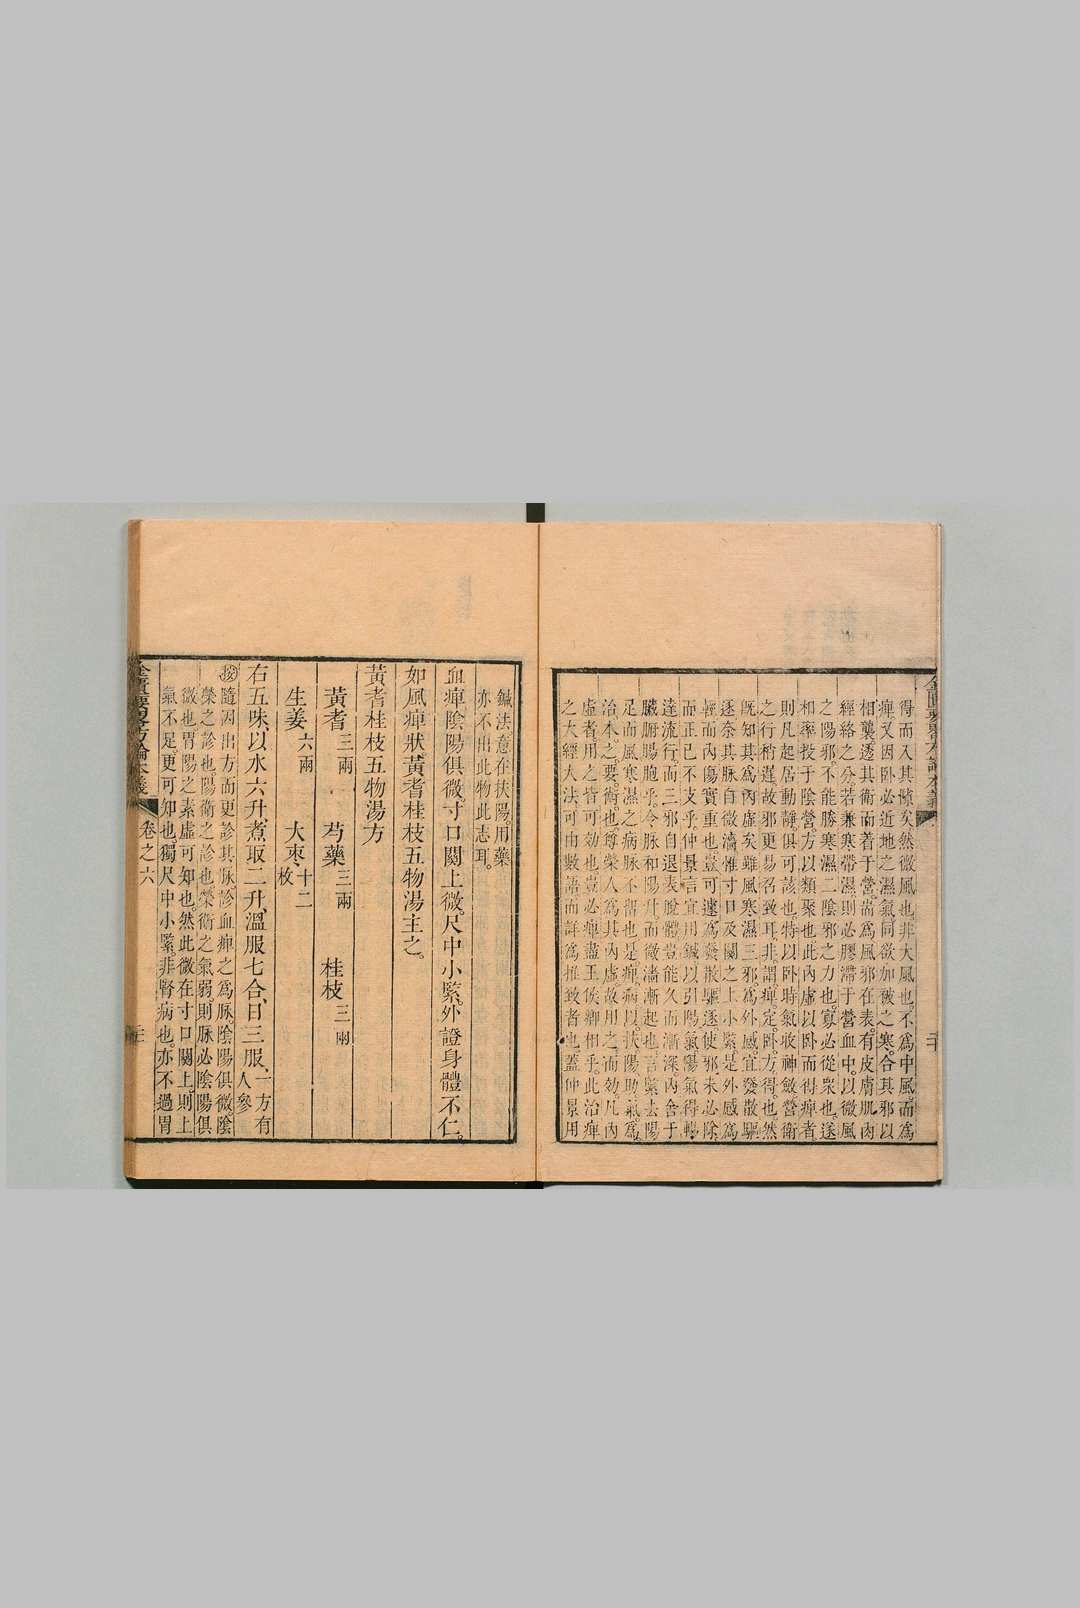 得而入其隙矣然微風也非大風也不爲中風而爲
痺又因卧必近地之濕氣同欲加被之寒合其邪以
相襲透其衛而着于營耑爲風邪在表有皮膚肌肉
經絡之分若兼寒帶濕則必膠滯于營血中以微風
之陽邪不能勝寒濕二陰邪之力也寡必從衆也遂
相率投于陰營方以類聚也此內虛以卧而得痺者
則凡起居動靜俱可該也特以卧時氣收神斂營衛
之行稍遲故邪更易召致耳非謂痺定卧方得也然
既知其爲內虛矣雖風寒濕三邪爲外感宜發散驅
逐奈其脉自微濇惟寸口及關之上小緊是外感爲
輕而內傷實重也豈可遽爲發散驅逐使邪未必除
而正已不支乎仲景言宜用鍼以引陽氣陽氣得暢
達流行而三邪自退表脫體豈能久而漸深內舍于
臟腑腸胞乎令脉和陽升而微濇漸起也言緊去陽
足而風寒濕之病脉不留也是痺病以扶陽助氣爲
治本之要術也尊榮人爲其內虛故用之而効凡內
虛者用之皆可効也豈必痺盡王侯卿相乎此治痺
之大經大法可由數語而詳爲推致者也蓋仲景用
金匱要畧方論本義
二十
鍼法意在扶陽用藥
亦不出此物此志耳。
血痺陰陽俱微寸口關上微尺中小緊外證身體不仁。
如風痺狀黃耆桂枝五物湯主之。
黃耆桂枝五物湯方
黃耆三兩　芍藥三兩　桂枝三兩
生姜六兩　大枣十二枚
右五味以水六升煮取二升溫服七合日三服一方有人參
㊟按隨因出方而更診其脉診血痺之爲脉陰陽俱微陰
榮之診也陽衛之診也榮衛之氣弱則脉必陰陽俱
微也胃陽之素虛可知也然此微在寸口關上則上
氣不足更可知也獨尺中小緊非腎病也亦不過胃
金匱要畧方論本義
卷之六